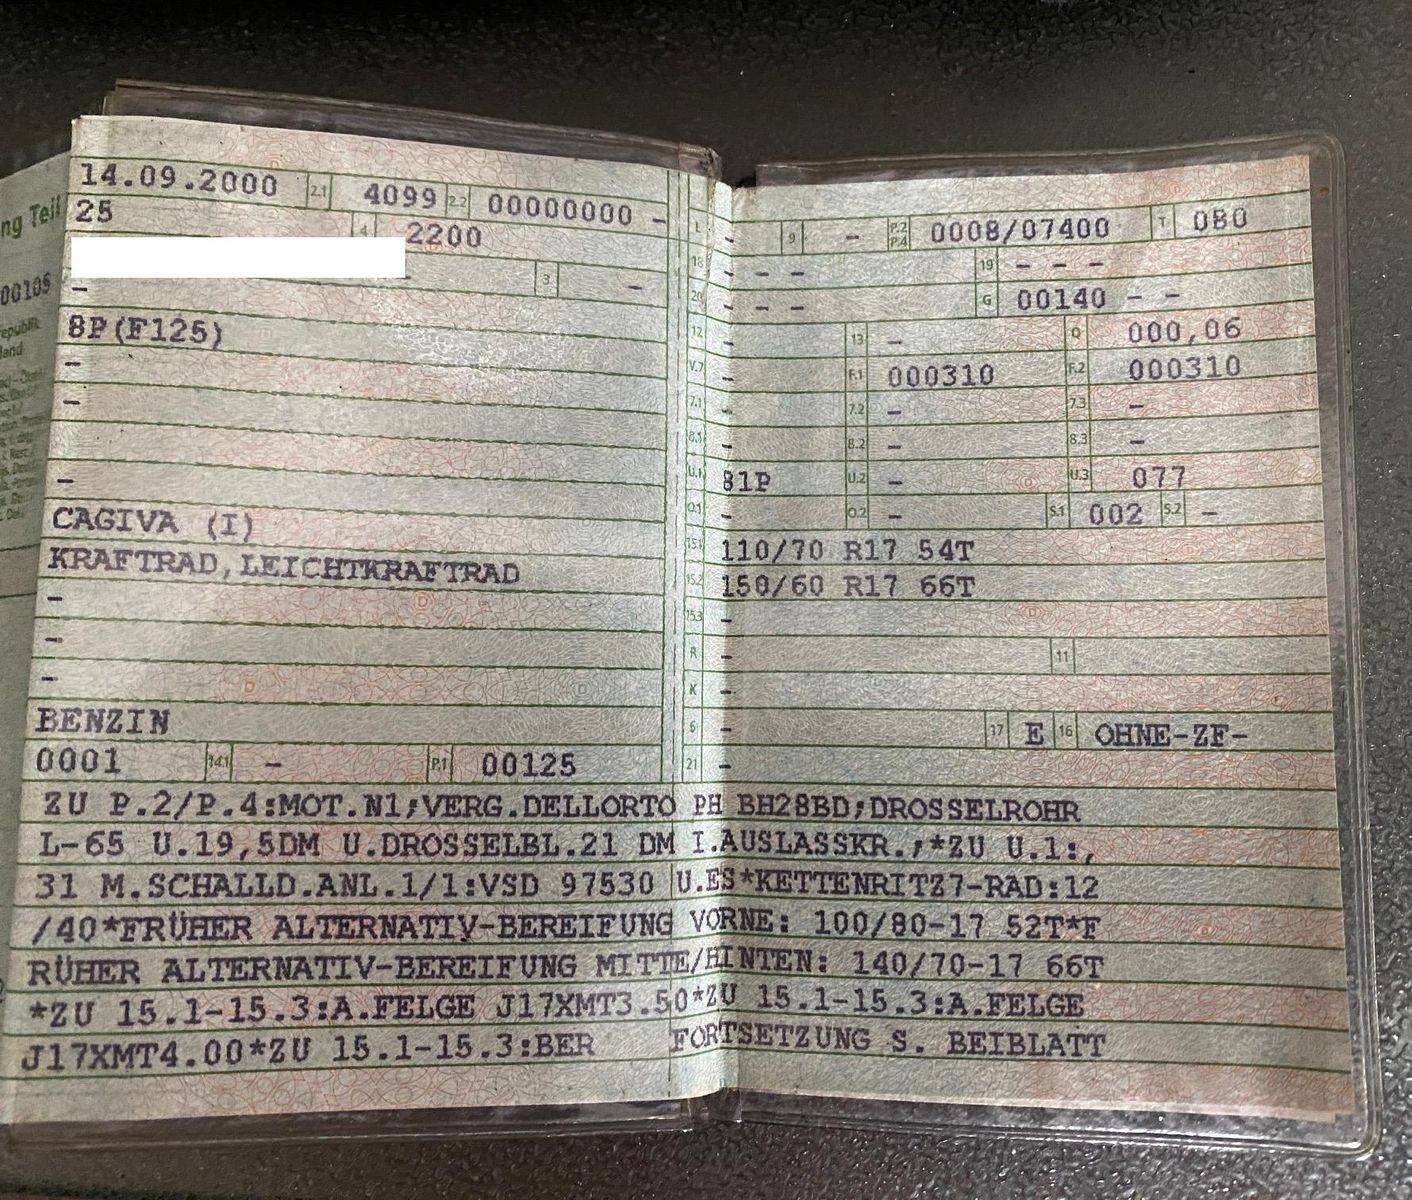 14.09.2000 2.1 4099 2.2 00000000 -
ng Teil
25 4 2200
- 3 -
00105
-
8P(F125)
-
-
-
CAGIVA (I)
KRAFTRAD,LEICHTKRAFTRAD
-
-
-
BENZIN
0001 14.1 - P.1 00125
L - 9 - P.2 P.4 0008/07400 T 080
18 - - - 19 - - -
20 - - - G 00140 - -
12 - 13 - Q 000,06
V.7 - F.1 000310 F.2 000310
7.1 - 7.2 - 7.3 -
8.1 - 8.2 - 8.3 -
U.1 81P U.2 - U.3 077
O.1 - O.2 - S.1 002 S.2 -
15.1 110/70 R17 54T
15.2 150/60 R17 66T
15.3 -
R - 11
K -
6 - 17 E 16 OHNE-ZF-
21 -
ZU P.2/P.4:MOT.N1;VERG.DELLORTO PH BH28BD;DROSSELROHR
L-65 U.19,5DM U.DROSSELBL.21 DM I.AUSLASSKR.;*ZU U.1:,
31 M.SCHALLD.ANL.1/1:VSD 97530 U.ES*KETTENRITZ7-RAD:12
/40*FRÜHER ALTERNATIV-BEREIFUNG VORNE: 100/80-17 52T*F
RÜHER ALTERNATIV-BEREIFUNG MITTE/HINTEN: 140/70-17 66T
*ZU 15.1-15.3:A.FELGE J17XMT3.50*ZU 15.1-15.3:A.FELGE
J17XMT4.00*ZU 15.1-15.3:BER FORTSETZUNG S. BEIBLATT